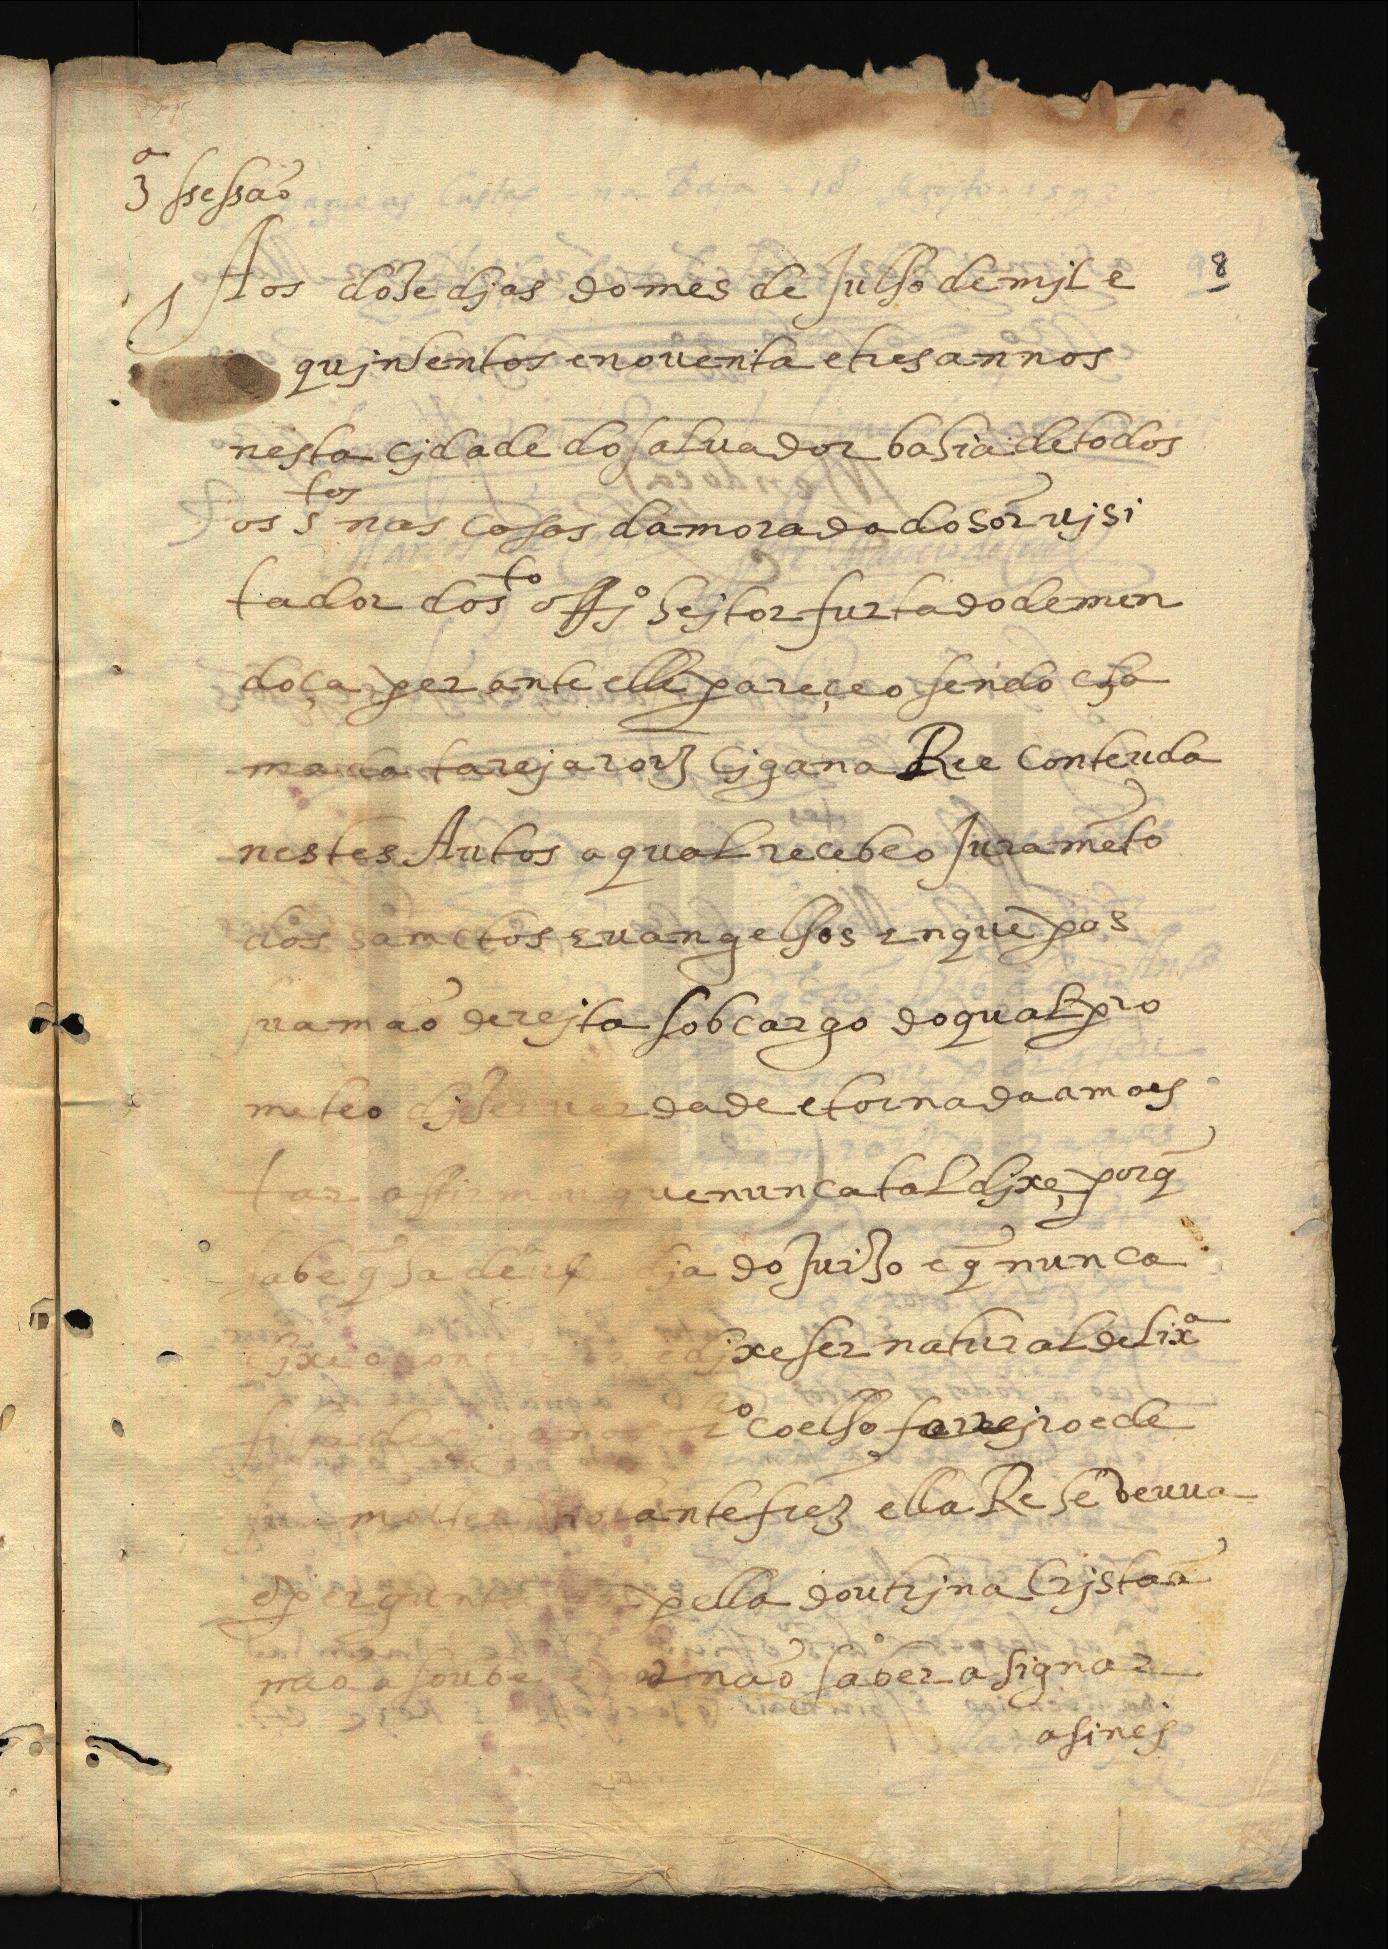 3ª ssessaõ
8
Aos doze djas do mes de Julho de mjl e
qujnhentos e noventa e tres annos
nesta cjdade do saluador bahia de todos
os stos nas casas da morada do sõr ujsi
tador do sto offjº hejtor furtado de men
doça perante elle pareçeo sendo cha
mada tareja roiz cjgana Ree contenda
nestes Autos a qual recebeo Juramẽto
dos sanctos euangelhos en que pos
sua maõ derejta sob cargo do qual pro
meteo djzer uerdade e tornada amoes
tar afirmou que nunca tal djxe, porq̃
sabe q̃ ha de dja do Juizo e q̃ nunca
djxe ser natural de lixª
coelho ferrejro e de
ante frez ella Re he veuva
e perguntada pella doutrjna Crjstaã
naõ a soube e naõ saber asignar
asinej